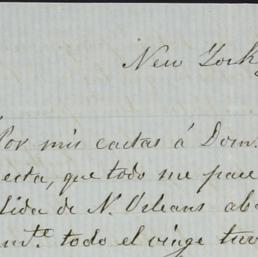 New York,
Por mis cartas á Dom
esta, que todo me pare
lida de N. Orleans ab
todo el